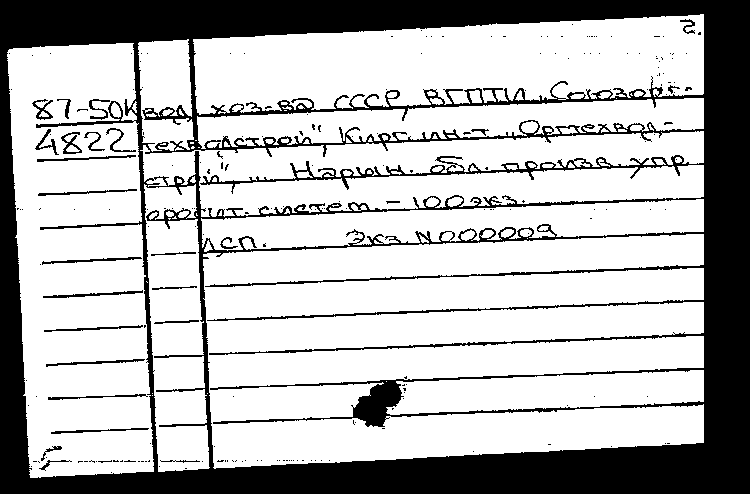 2.
87-50К вод. хоз-ва СССР, ВГПТИ „Союзорг-
4822 техводстрой", Кирг. ин-т „Оргтехвод-
строй",... Нарын. обл. произв. упр
оросит. систем. - 100 экз.
ДСП. Экз. N000009
5